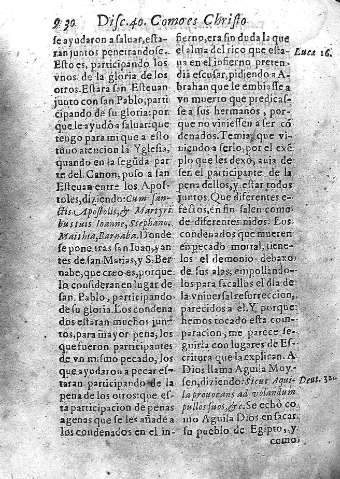 930 Disc.40. Como es Christo
se ayudaron a saluar, esta-
ran juntos penetrandose.
Esto es, participando los
vnos de la gloria de los
otros. Estara san Esteuan
junto con san Pablo, parti-
cipando de su gloria: por
que le ayudò a saluar: que
tengo para mi que a esto
tuuo atencion la Yglesia,
quando en la segũda par-
te del Canon, puso a san
Esteuan entre los Apos-
toles, diziendo: Cum san-
ctis Apostolis, & Martyri
bus tuis Ioanne, Stephano,
Matthia, Barnaba. Donde
se pone tras san Ioan, y an-
tes de san Matias, y S. Ber-
nabe, que creo es, porque
lo consideran en lugar de
san Pablo, participando
de su gloria. Los condena
dos estaran muchos jun-
tos, para mayor pena, los
que fueron participantes
de vn mismo pecado, los
que ayudaron a pecar es-
taran participando de la
pena de los otros: que es-
ta participacion de penas
agenas que se les añade a
los condenados en el in-
fierno, era sin duda la que
el alma del rico que esta-
ua en el infierno preten-
dia escusar, pidiendo a A-
brahan que le embiasse a
vn muerto que predicas-
se a sus hermanos, por-
que no viniessen a ser cõ
denados. Temia, que vi-
niendo a serlo, por el exẽ
plo que les dexò, auia de
ser el participante de la
pena dellos, y estar todos
juntos. Que diferentes e-
fectos, en fin salen como
de diferentes nidos. Los
condenados que mueren
en pecado mortal, tiene-
los el demonio debaxo
de sus alas, empollando-
los para sacallos el dia de
la vniuersal resurreccion,
parecidos a el. Y porque
hemos tocado esta com-
paracion, me parece se-
guirla con lugares de Es-
critura que la explican. A
Dios llamo Aguila Moy-
sen, diziendo: Sicut Aqui-
la prouocans ad volandum
pullos suos, &c. Se echò co
mo Aguila Dios en sacar
su pueblo de Egipto, y
como
Luca 16.
Deut. 32.